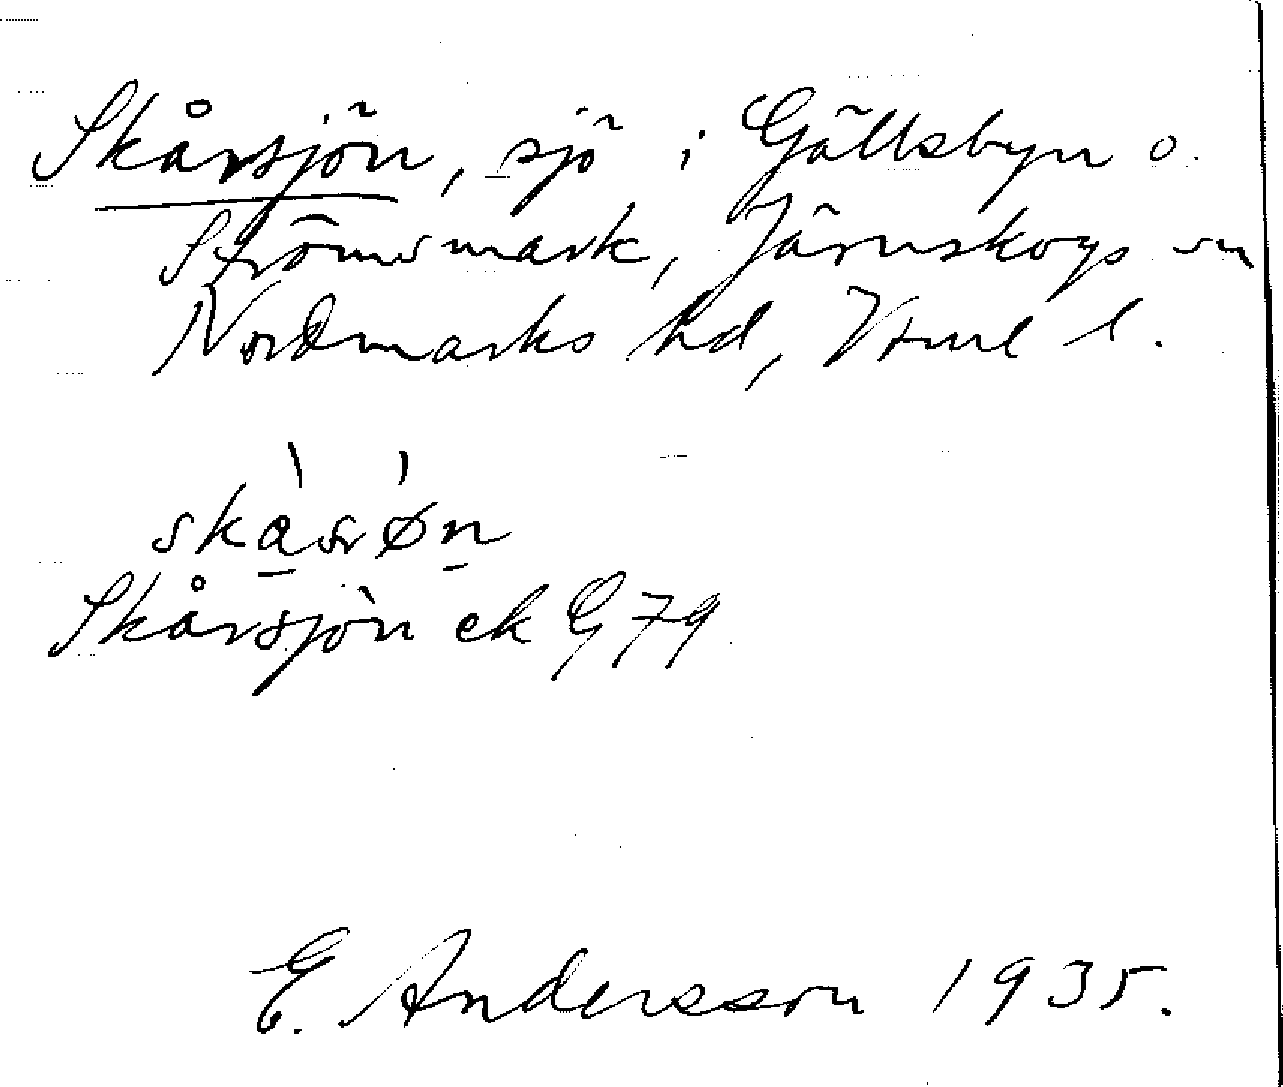 Skårsjön, sjö i Gällsbyn o.
Strömsmark, Järnskogs sn
Nordmarks hd, Vrml l.
Skårsjön ek G 79
E. Andersson 1935.